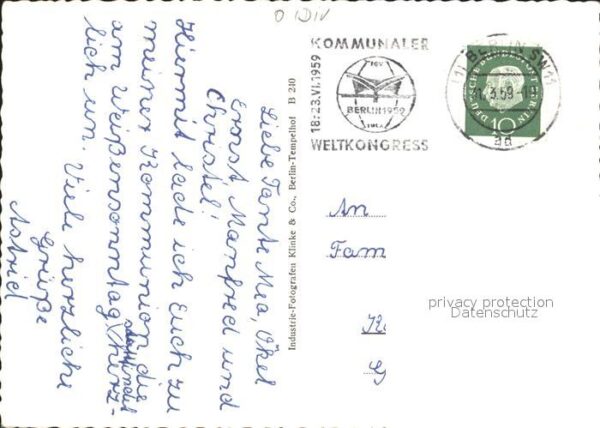 0 DIV
KOMMUNALER
18.-23.VI.1959
BERLIN 1959
WELTKONGRESS
(1) BERLIN SW 11
-1.3.59
ad
DEUTSCHE BUNDESPOST BERLIN
10
Liebe Tante Mia, Onkel
Ernst, Manfred und
Christel!
Hiermit lade ich Euch zu
meiner Kommunion, die
am Weißensonntag stattfindet, herz-
lich ein. Viele herzliche
Grüße
Astrid
Industrie-Fotografen Klinke & Co., Berlin-Tempelhof B 240
An
Fam
privacy protection
Datenschutz